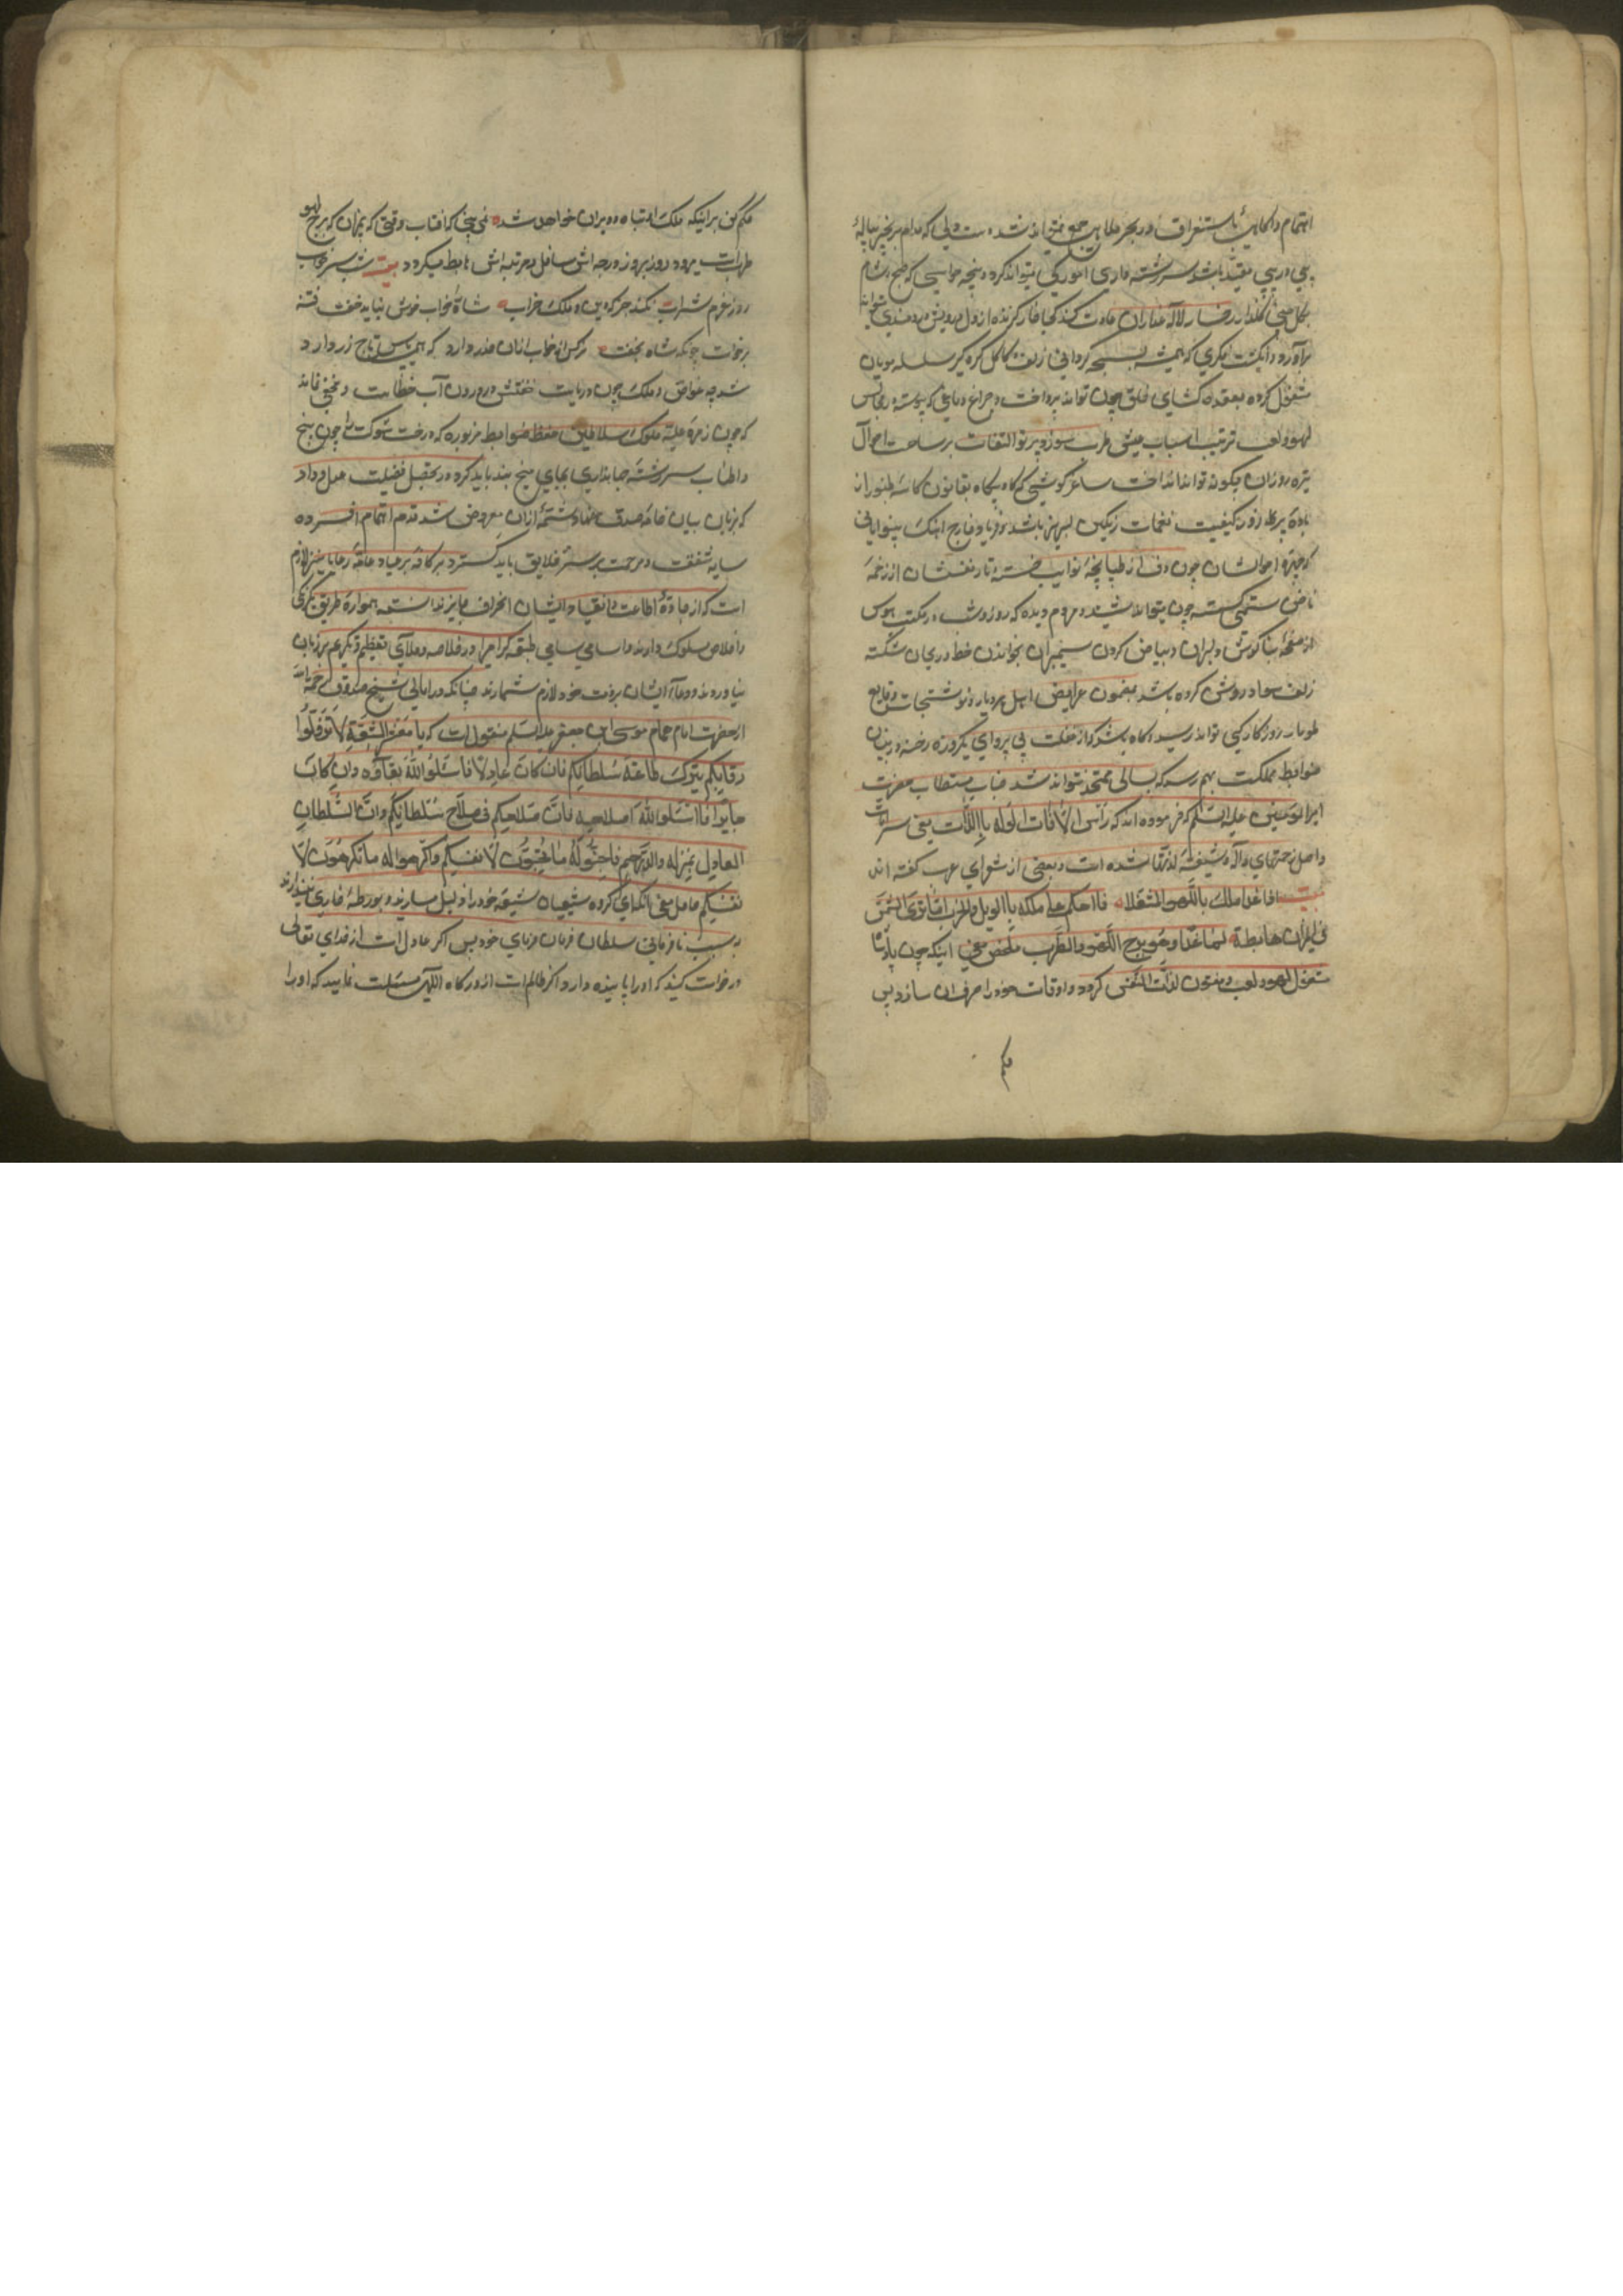 اهتمام و آگاهی با استغراق در بحر ملاهی جمع نمیتواند شد دلی که مدام بزنجیر پیاله
پی در پی مقید باشد سررشته داری امور کی میتواند کرد و پنجه حواسی که صبح و شام
بگل چینی گلذار رخسار لاله عذاران عادت کند کجا خار گزنده از دل درویش دردمندی تواند
برآورد و انگشت فکری که همیشه بسبحه گردانی زلف و کاکل گره گیر سلسله مویان
مشغول کرده بعقده گشای خلق چون تواند پرداخت و چراغ دماغی که پیوسته در مجالس
لهو و لعب ترتیب اسباب عیش و طرب سوزد پرتو التفات بر ساحت احوال
تیره روزان چگونه تواند انداخت ساغر گوشی که گاه و بیگاه بقانون کاسه طنبور از
باده پر زور کیفیت نغمات رنگین لبریز باشد فریاد خارج آهنگ بینوایانی
که چهره احوالشان چون دف از طپانچه نوایب خسته و تار نفسشان از زخمه
ناخن ستمی گسسته چون میتواند شنید و مردم دیده که روز و شب در مکتب هوس
از صفحه بناگوش دلبران و بیاض گردن سیمبران بخواندن خط ریحان شکسته
زلف سواد روشن کرده باشد بمضمون عرایض اهل هر دیار و نوشتجات وقایع
طومار روزگار کی تواند رسید و گاه باشد که از غفلت بی پروای یکروزه رخنه در بنیان
ضوابط مملکت بهم رسد که بسالی ممتد نتواند شد جناب مستطاب حضرت
امیرالمومنین علیه السلم که فرموده اند که رأس الآفات الوله باللذات یعنی سر آفات
و اصل زحمتهای واله و شیفته لذتها شدن است و بعضی از شعرای عرب گفته اند
بیت اذا غدا ملك باللهو مشتغلا فاحکم علی ملکه بالویل والحرب اما تری الشمس
فی المیزان هابطة لما غدا وهو برج اللهو والطرب ملخص معنی اینکه چون پادشا
مشغول لهو و لعب و مفتون لذات گردد و اوقات خود را صرف آن سازد پس
حکم
حکم کن بر اینکه ملک او تباه و ویران خواهد شد نمی بینی که آفتاب وقتی که بمیزان که برج لهو
و طرب است میرود روز بروز درجه اش سافل و مرتبه اش هابط میگردد بیت شب بسر خواب
روز عزم شراب نکند جز که دین و ملک خراب شاه را خواب خوش نباید خفت فتنه
برخواست چونکه شاه بخفت نرگس از خواب از آن حذر دارد که همی پاس تاج زر دارد
شه چه غواص و ملک چون دریاست خفتش در درون آب خطاست و مخفی نماند
که چون زمره علیه ملوک و سلاطین حفظ ضوابط مزبوره که درخت شوکت را چون بیخ
و اطناب سررشته جهانداری بجای میخ بند باید کرد و در تحصیل فضیلت عدل و داد
که بزبان بیان خامه صدق نهاد شمه از آن معروض شد قدم اهتمام افشرده
سایه شفقت و مرحمت بر سر خلایق باید گسترد بر کافه برایا و عامه رعایا نیز لازم
است که از جاده اطاعت و انقیاد ایشان انحراف جایز ندانسته همواره طریق یکرنگی
و اخلاص مسلوک دارند و اسامی سامی طبقه گرامی را در خلا و ملا بی تعظیم و تکریم بر زبان
نیاورند و دعای ایشان بر ذمت خود لازم شمارند چنانکه در امالی شیخ صدوق رحمه الله
از حضرت امام همام موسی ابن جعفر علیه السلم منقول است که یا معشر الشیعة لا تذلوا
رقابکم بترك طاعة سلطانکم فان کان عادلا فاسئلوا الله بقاؤه وان کان
جایرا فاسئلوا الله اصلاحه فان صلاحکم فی صلاح سلطانکم وان السلطان
العادل بمنزله والد رحیم فاحبوا له ما تحبون لانفسکم واکرهوا له ما تکرهون لا
نفسکم حاصل معنی آنکه ای گروه شیعیان شیعه خود را ذلیل مسازید و بورطه خاری نیندازید
بسبب نافرمانی سلطان فرمان فرمای خود پس اگر عادل است از خدای تعالی
درخواست کنید که او را پاینده دارد و اگر ظالم است از درگاه الهی مسئلت نمایید که او را